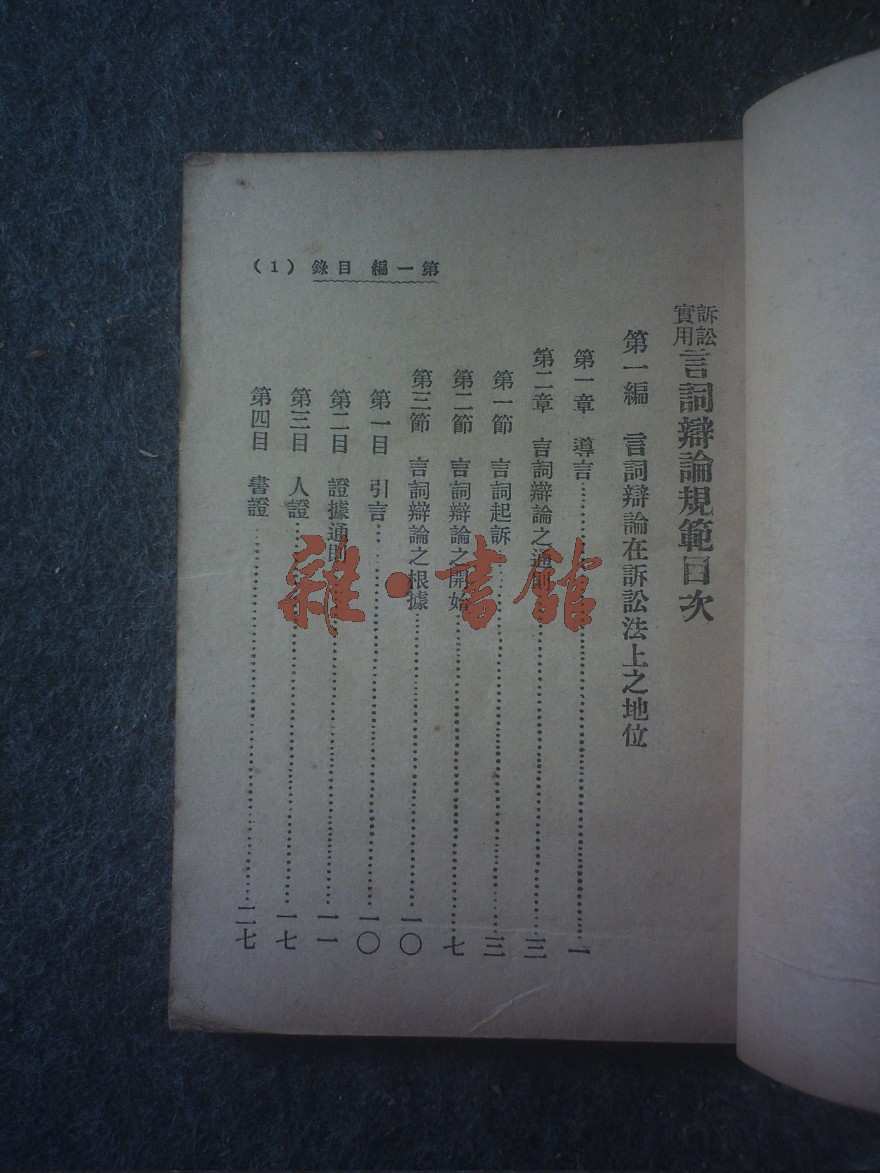 第一編 目錄 (1)
訴訟實用言詞辯論規範目次
第一編 言詞辯論在訴訟法上之地位
第一章 導言…………一
第二章 言詞辯論之通則…………三
第一節 言詞起訴…………三
第二節 言詞辯論之開始…………七
第三節 言詞辯論之根據…………一〇
第一目 引言…………一〇
第二目 證據通則…………一一
第三目 人證…………一七
第四目 書證…………二七
雜·書館